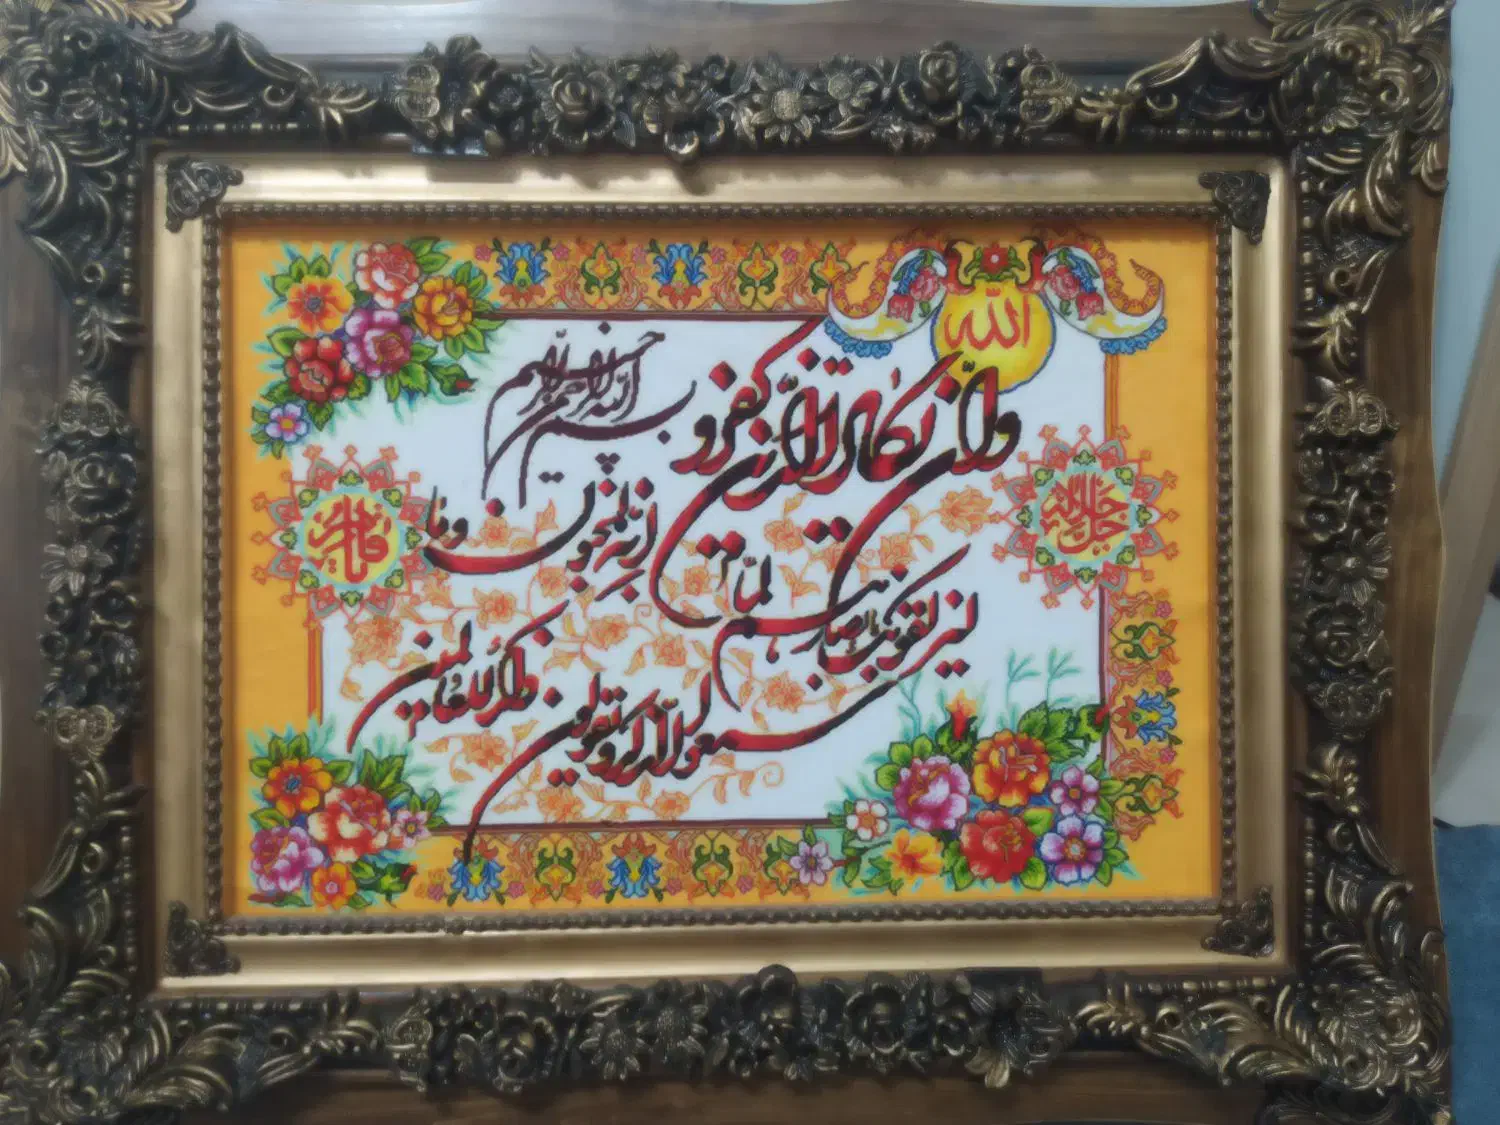 الله
بسم الله الرحمن الرحیم
وان یکاد الذین کفروا
لیزلقونک بابصارهم لما
سمعوا الذکر و یقولون
انه لمجنون وما
هو الا ذکر للعالمین
جل جلاله